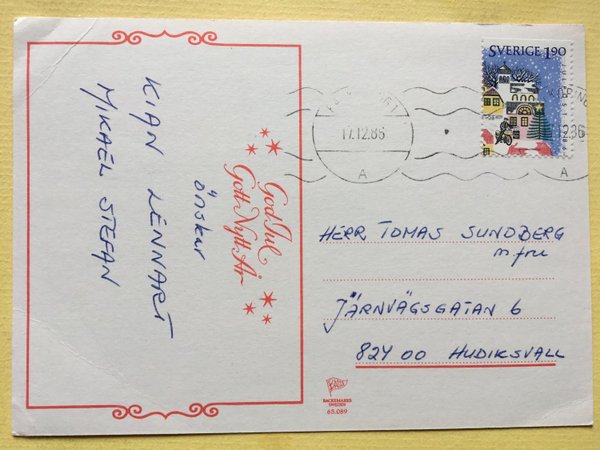 God Jul
Gott Nytt År
önskar
KIAN LENNART
MIKAEL STEFAN
SVERIGE 1.90
17.12.86
A
12.86
A
HERR TOMAS SUNDBERG
m fru
JÄRNVÄGSGATAN 6
824 00 HUDIKSVALL
BACKEMARKS
SWEDEN
65.089